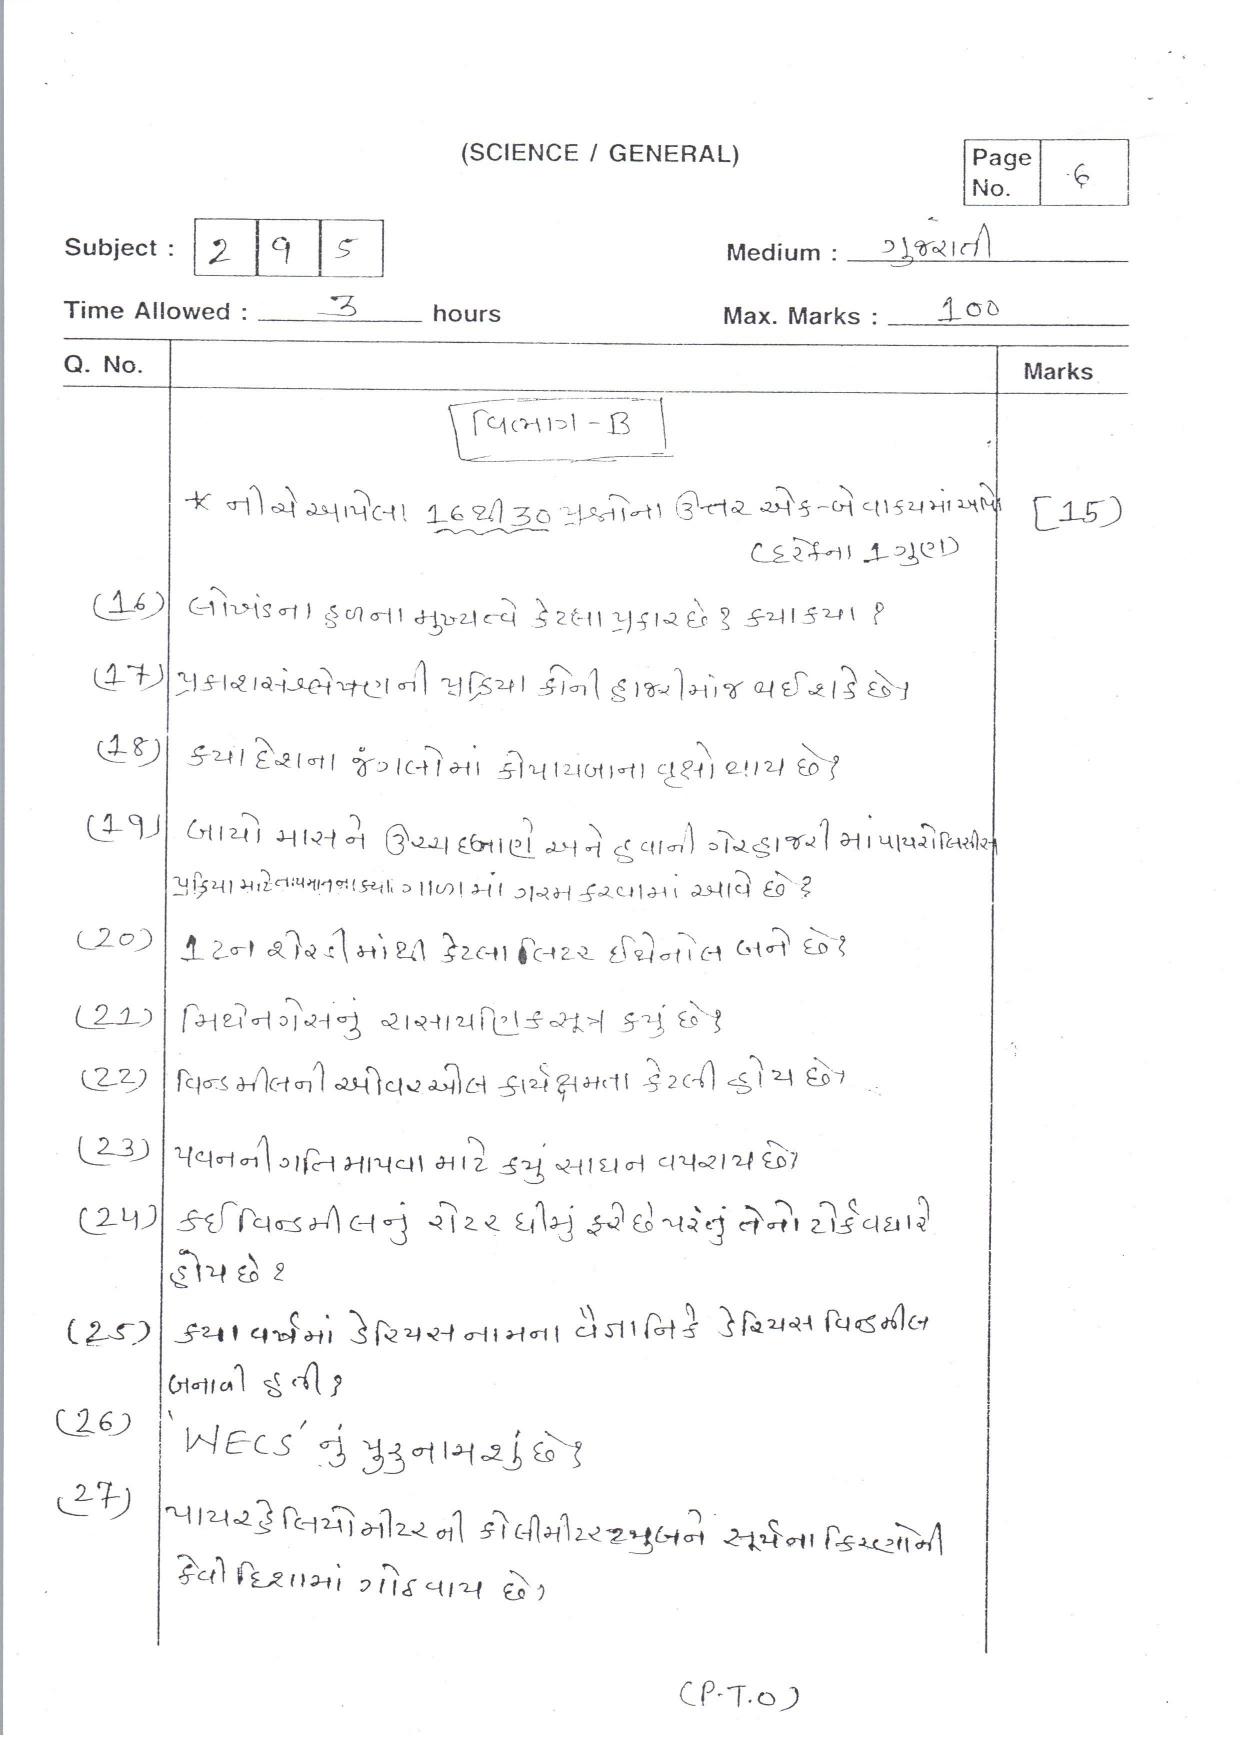 (SCIENCE / GENERAL)
Page No. 6
Subject : 2 9 5
Medium : ગુજરાતી
Time Allowed : 3 hours
Max. Marks : 100
Q. No.
Marks
વિભાગ - B
* નીચે આપેલા 16થી 30 પ્રશ્નોના ઉત્તર એક-બે વાકયમાં આપો [15]
(દરેકના 1 ગુણ)
(16) લોખંડના હળના મુખ્યત્વે કેટલા પ્રકાર છે? કયા કયા ?
(17) પ્રકાશસંશ્લેષણની પ્રક્રિયા કોની હાજરીમાંજ થઈ શકે છે?
(18) કયા દેશના જંગલોમાં કોપાયબાના વૃક્ષો થાય છે?
(19) બાયો માસને ઉચ્ચ દબાણે અને હવાની ગેરહાજરી માં પાયરોલિસીસ
પ્રક્રિયા માટે તાપમાનના કયા ગાળામાં ગરમ કરવામાં આવે છે ?
(20) 1 ટન શેરડીમાંથી કેટલા લિટર ઈથેનોલ બને છે?
(21) મિથેનગેસનું રાસાયણિક સૂત્ર કયું છે?
(22) વિન્ડમીલની ઓવરઓલ કાર્યક્ષમતા કેટલી હોય છે?
(23) પવનની ગતિ માપવા માટે કયું સાધન વપરાય છે?
(24) કઈ વિન્ડમીલનું રોટર ધીમું ફરે છે પરંતું તેનો ટોર્ક વધારે
હોય છે ?
(25) કયા વર્ષમાં ડેરિયસ નામના વૈજ્ઞાનિકે ડેરિયસ વિન્ડમીલ
બનાવી હતી?
(26) 'WECS' નું પુરુ નામ શું છે?
(27) પાયરહેલિયોમીટરની કોલીમીટર ટ્યુબને સૂર્યના કિરણોની
કેવી દિશામાં ગોઠવાય છે?
(P.T.O)